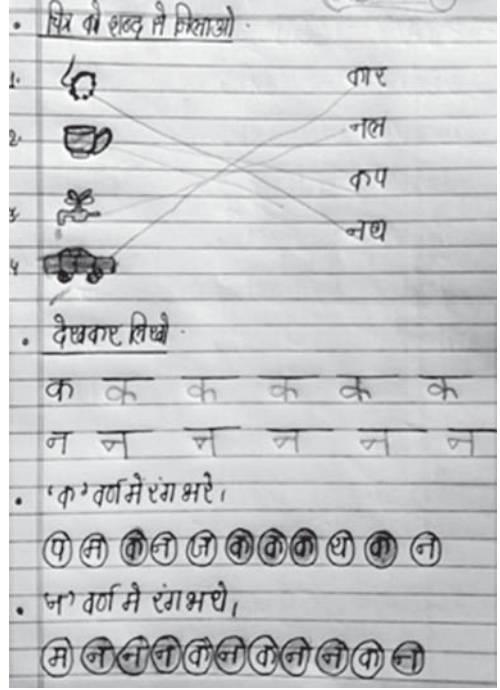 चित्र को शब्द से मिलाओ
1. कार
2. नल
3. कप
4 नथ
देखकर लिखो
क क क क क क
न न न न न न
'क' वर्ण में रंग भरे।
प म क न ज क क क थ क न
'न' वर्ण में रंग भरो,
म न न न क न क न न क न